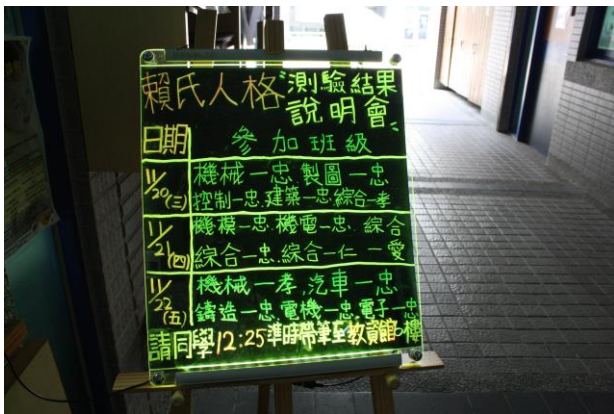 賴氏人格測驗結果
說明會
日期 參加班級
11/20(三) 機械一忠.製圖一忠
控制一忠.建築一忠.綜合一孝
11/21(四) 機模一忠.機電一忠.綜合
綜合一忠.綜合一仁 一愛
11/22(五) 機械一孝,汽車一忠
鑄造一忠.電機一忠.電子一忠
請同學12:25準時帶筆至教資館 樓